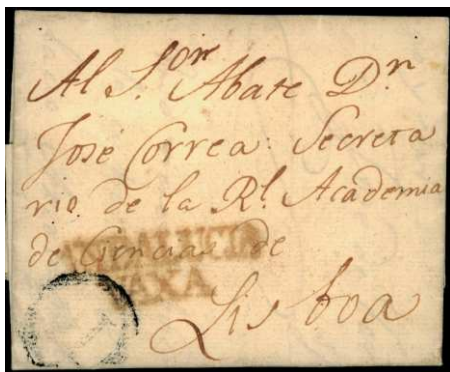 Al S.ᵒʳ Abate Dⁿ
José Correa: Secreta
rio. de la Rl. Academia
de Ciencias de
BAXA
Lisboa